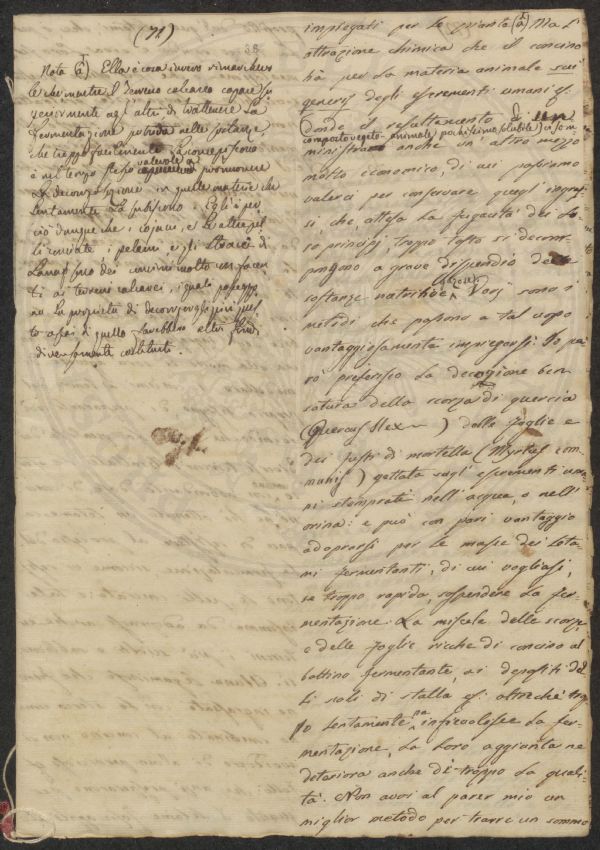 (72)
38
Nota (a) Ella è cosa invero rimarchevo
le che mentre il terreno calcareo capace su
periormente agl'altri di trattenere la
fermentazione putrida nelle sostanze,
che troppo facilmente la concepiscono
è nel tempo stesso valevole a promuovere
la decomposizione in quelle materie che
lentamente la subiscono. Egli è per
ciò dunque che i cojami, e le altre pel
li conciate, i pelami e gli stracci di
Lana sono dei concimi molto con facen
ti ai terreni calcarei, i quali posseggo
no la proprietà di decomporgli più pres
to assai di quello farebbero altri fondi
diversamente costituiti.
impiegati per le piante (a) Ma l'
attrazione chimica che il concino
ha per la materia animale sui
generis degli escrementi umani &.
donde il resultamento d'un
composto vegeto-animale, pochissimo solubile) ci som
ministra anche un'altro mezzo
molto economico, di cui possiamo
valerci per conservare quegl'ingras
si che, attesa la fugacità dei lo
ro principj, troppo tosto si decom
pongono a grave dispendio delle
sostanze nutritive. Varj sono i
metodi che possono a tal uopo
vantaggiosamente impiegarsi. Io pe
rò preferisco la decozione ben
satura della scorza di quercia
(Quercus Ilex) delle foglie e
dei fusti di mortella (Myrtus com
munis) gettata sugl'escrementi uma
ni stemprati nell'acqua, o nell'
orina: e può con pari vantaggio
adoprarsi per le masse dei leta
mi fermentanti, di cui vogliasi,
se troppo rapida sospendere la fer
mentazione. La miscela delle scorze,
e delle foglie ricche di concino al
bottino fermentante, ai depositi del
li soli di stalla &. oltreché trop
po lentamente ne infievolisce la fer
mentazione, la loro aggiunta ne
deteriora anche di troppo la quali
tà. Non avvi al parer mio un
miglior metodo per trarre un sommo